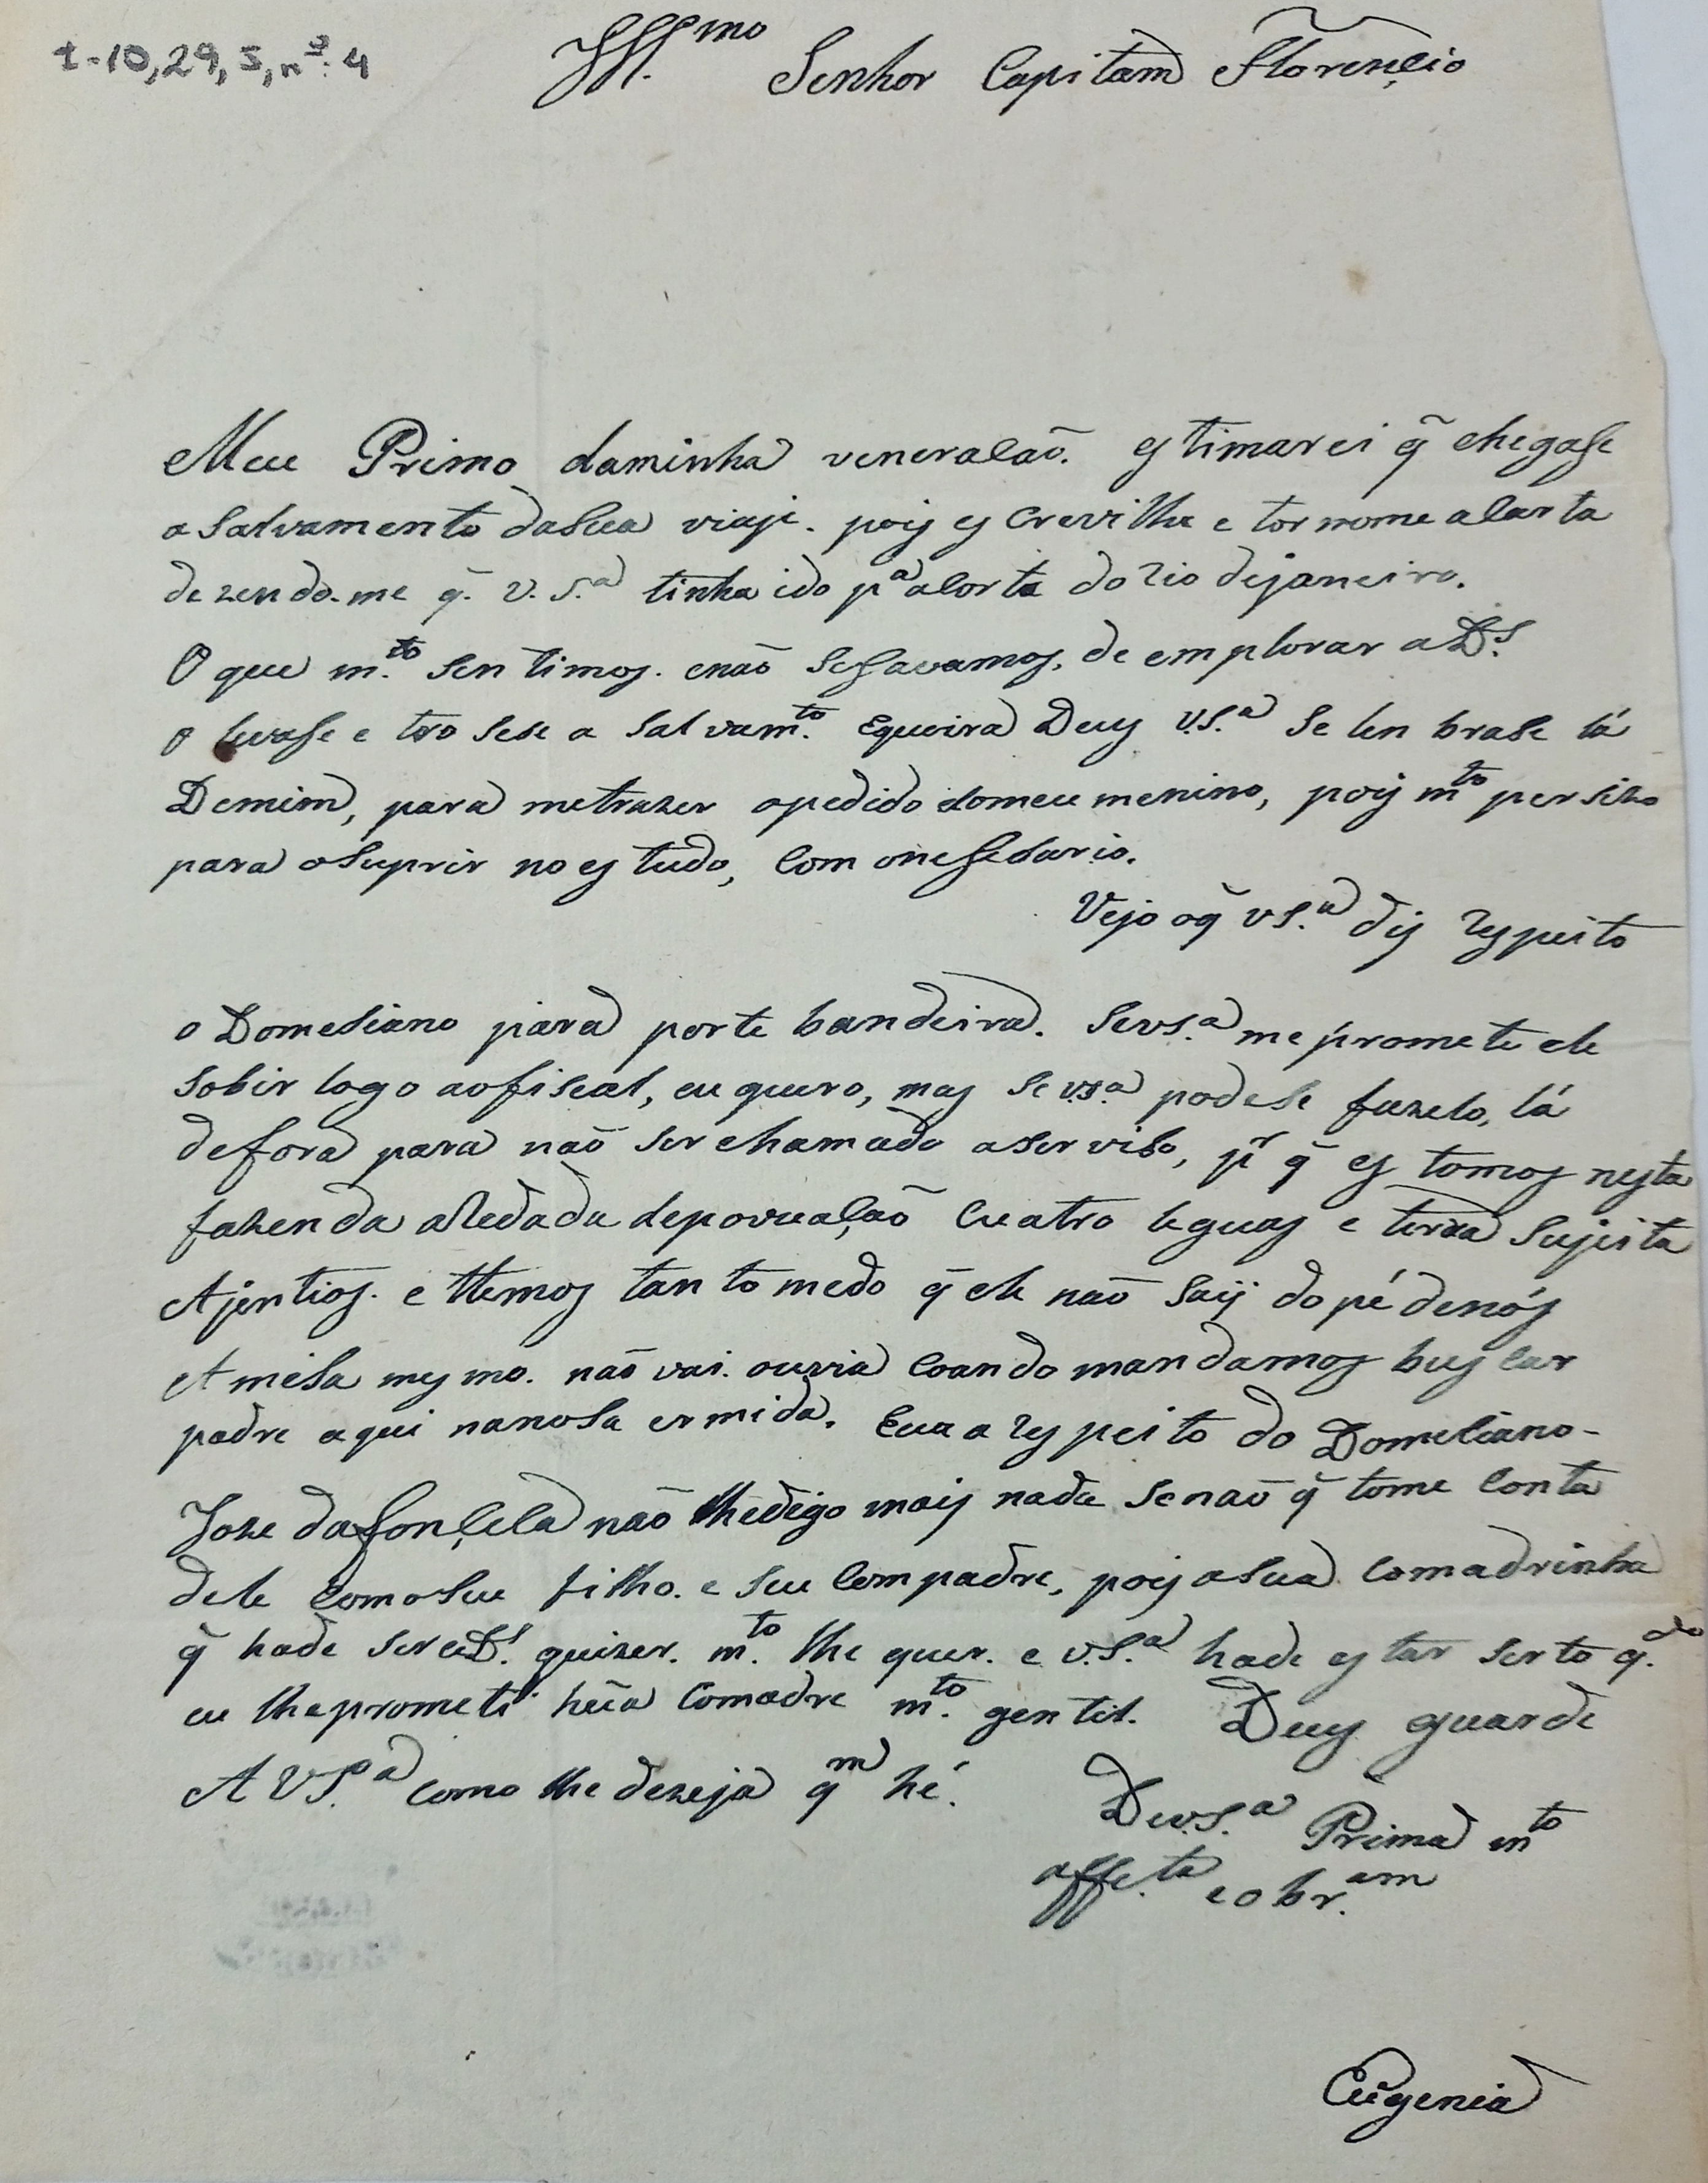 I-10,29,5,nº 4
Illmo Senhor Capitam Florençio
Meu Primo daminha veneracão. estimarei q̃ chegase
a salvamento dasua viaji. pois escrevilhe e tornome acarta
dezendo.me q̃. V. S.ª tinha ido pª acorte do rio dejaneiro.
O que m.to sentimos. enão sesavamos, de emplorar aDs.
o levase e trosese a salvam.to Equeira Deus V.S.ª se lenbrase lá
Demim, para metrazer opedido domeu menino, pois mto persizo
para osuprir no estudo, com onesesario.
Vejo oq̃ VS.ª dis respeito
o Domeciano para porte bandeira. SeVS.ª me promete ele
sobir logo aofiscal, eu quero, mas se V.S.ª podese fazelo, lá
defora para não ser chamado aserviso, pr q̃ estomos nesta
fazenda aredada depovuação cuatro leguas e terra sujeita
Ajentios. e ttemos tanto medo q̃ ele não saij dopé denós
A misa mesmo. não vai. ouvia coando mandamos buscar
padre aqui nanosa ermida. Eu a respeito do Domeciano-
Joze dafonçeca não lhedigo mais nada senão q̃ tome conta
dele comoseu filho. e seu compadre, pois asua comadrinha
q̃ hade ser seDs. quizer. m.to lhe quer. e V.S.ª hade estar serto q.do
eu lheprometi hũa comadre m.to gentil. Deus guarde
A VS.ª como lhe dezeja qm hé.
DeV.S.ª Prima mto
affe.ta e obr.am
Eugenia